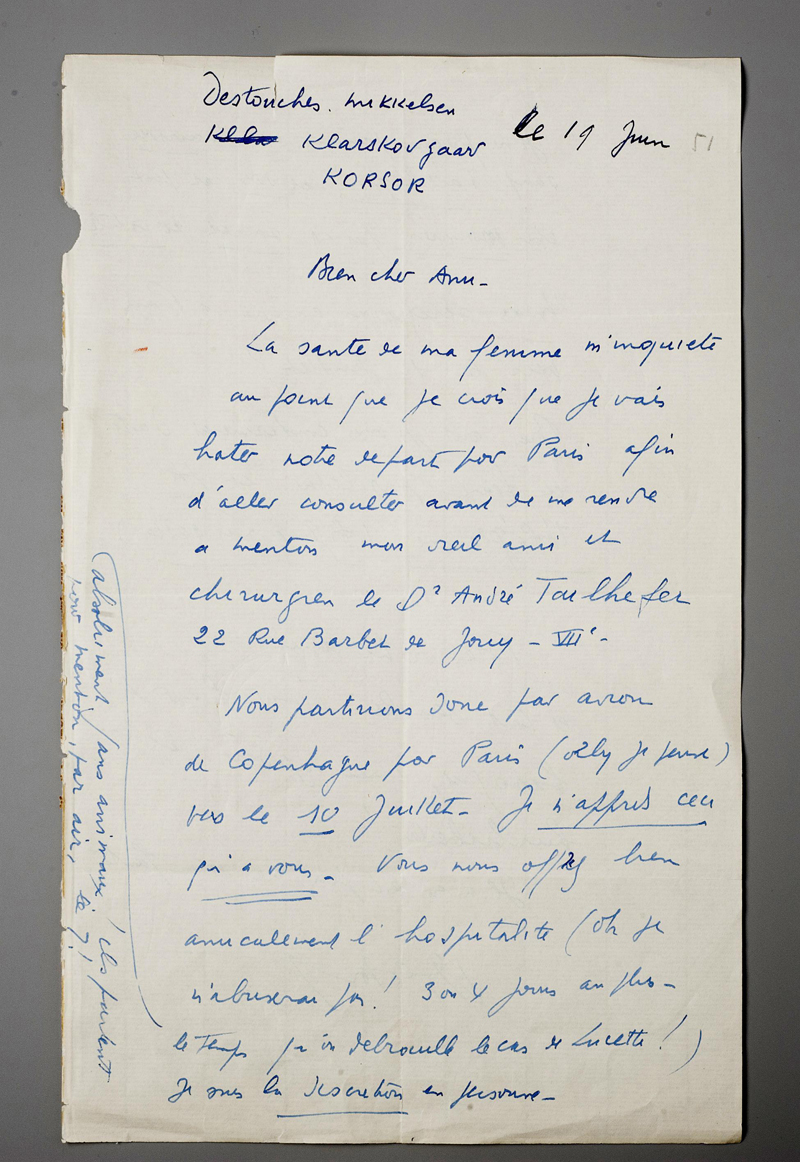 Destouches. Mikkelsen
Klarskovgaard le 19 Juin 51
KORSOR
Bien cher Ami -
La sante de ma femme m'inquiete
au point que je crois que je vais
hater notre depart por Paris afin
d'aller consulter avant de me rendre
a menton mon vieil ami et
chirurgien le Dr André Tailhefer
22 Rue Barbet de Jouy - VIIe -
Nous partirions donc par avion
de Copenhague por Paris (Orly je pense)
vers le 10 Juillet - Je n'apprds ceci
qu'a vous - Vous nous offrez bien
amicalement l'hospitalite (oh je
n'abuserai pas! 3 ou 4 jours au plus -
le temps qu'on debrouille le cas de Lucette!)
Je suis la discretion en personne -
absolument sans animaux! ils partent
pour menton, par air, le 7!